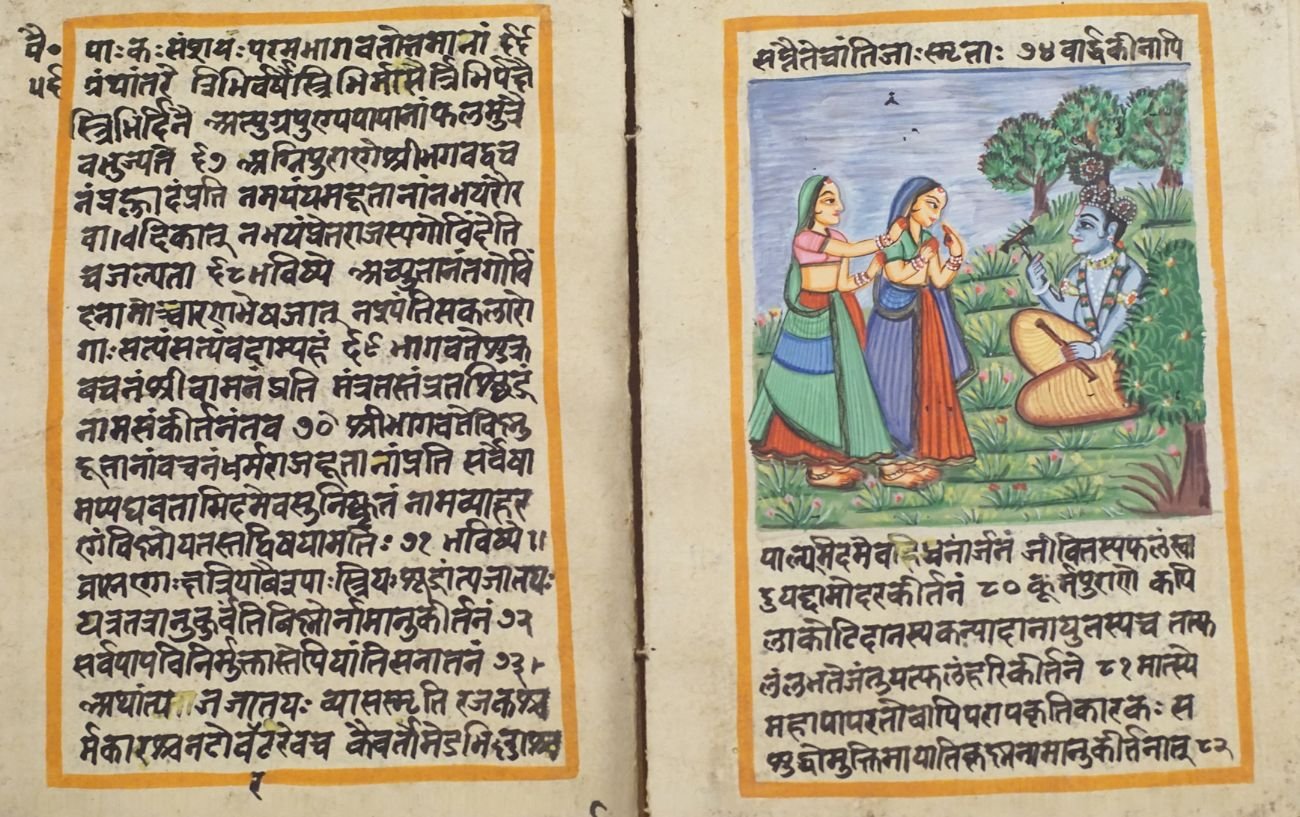 वै॰ पाः कः संशयः परमभागवतोत्तमानां ६६
५६ ग्रंथांतरे त्रिभिर्वर्षैस्त्रिभिर्मासैस्त्रिभिर्पक्षै
स्त्रिभिर्दिनै अत्युग्रपुण्यपापानांफलमुत्रै
वभुज्यते ६७ अग्निपुराणेश्रीभगवद्वच
नंप्रह्लादंप्रति नमयंयमदूतानांनभयंरौर
वा नभयंप्रेतराजस्यगोविंदेति
चजल्पता ६८ भविष्ये अच्युतानंतगोविं
दनामोच्चारणभेषजात् नश्यंतिसकलारो
गाः सत्यंसत्यंवदाम्यहं ६९ भागवतेशुक्र
वचनंश्रीवामनंप्रति मंत्रतस्तंत्रतश्छिद्रं
नामसंकीर्तनंतव ७० श्रीभागवतेविष्णु
दूतानांवचनंधर्मराजदूतानांप्रति सर्वेषा
मप्यघवतामिदमेवसुनिष्कृतं नामव्याहर
णंविष्णोयतस्तद्विषयामतिः ७१ भविष्ये ॥
ब्राह्मणाः क्षत्रियावैश्याः स्त्रियः शूद्रांत्यजातयः
यत्रतत्रानुकुर्वंतिविष्णोर्नामानुकीर्तनं ७२
सर्वपापविनिर्मुक्तास्तेपियांतिसनातनं ७३।
अथांत्य जजातयः व्यासस्मृति रजकश्च
र्मकारश्चनटोर्वटरेवच कैवर्तोमेडभिल्लाश्च
२
सप्तैतेचांतिजाः स्मृताः ७४ वार्द्धकीनापि
पाल्यमेदमेवहिधनार्जनं जीवितस्यफलंस्वा
दुयद्दामोदरकीर्तनं ८० कूर्मपुराणे कपि
लाकोटिदानस्यकन्यादानायुतस्यच तत्फ
लंलभतेजंतुयत्फलंहरिकीर्तने ८१ मात्स्ये
महापापरतोवापिपरापकृतिकारकः स
शुद्धोमुक्तिमायातिकृष्णनामानुकीर्तनात् ८२